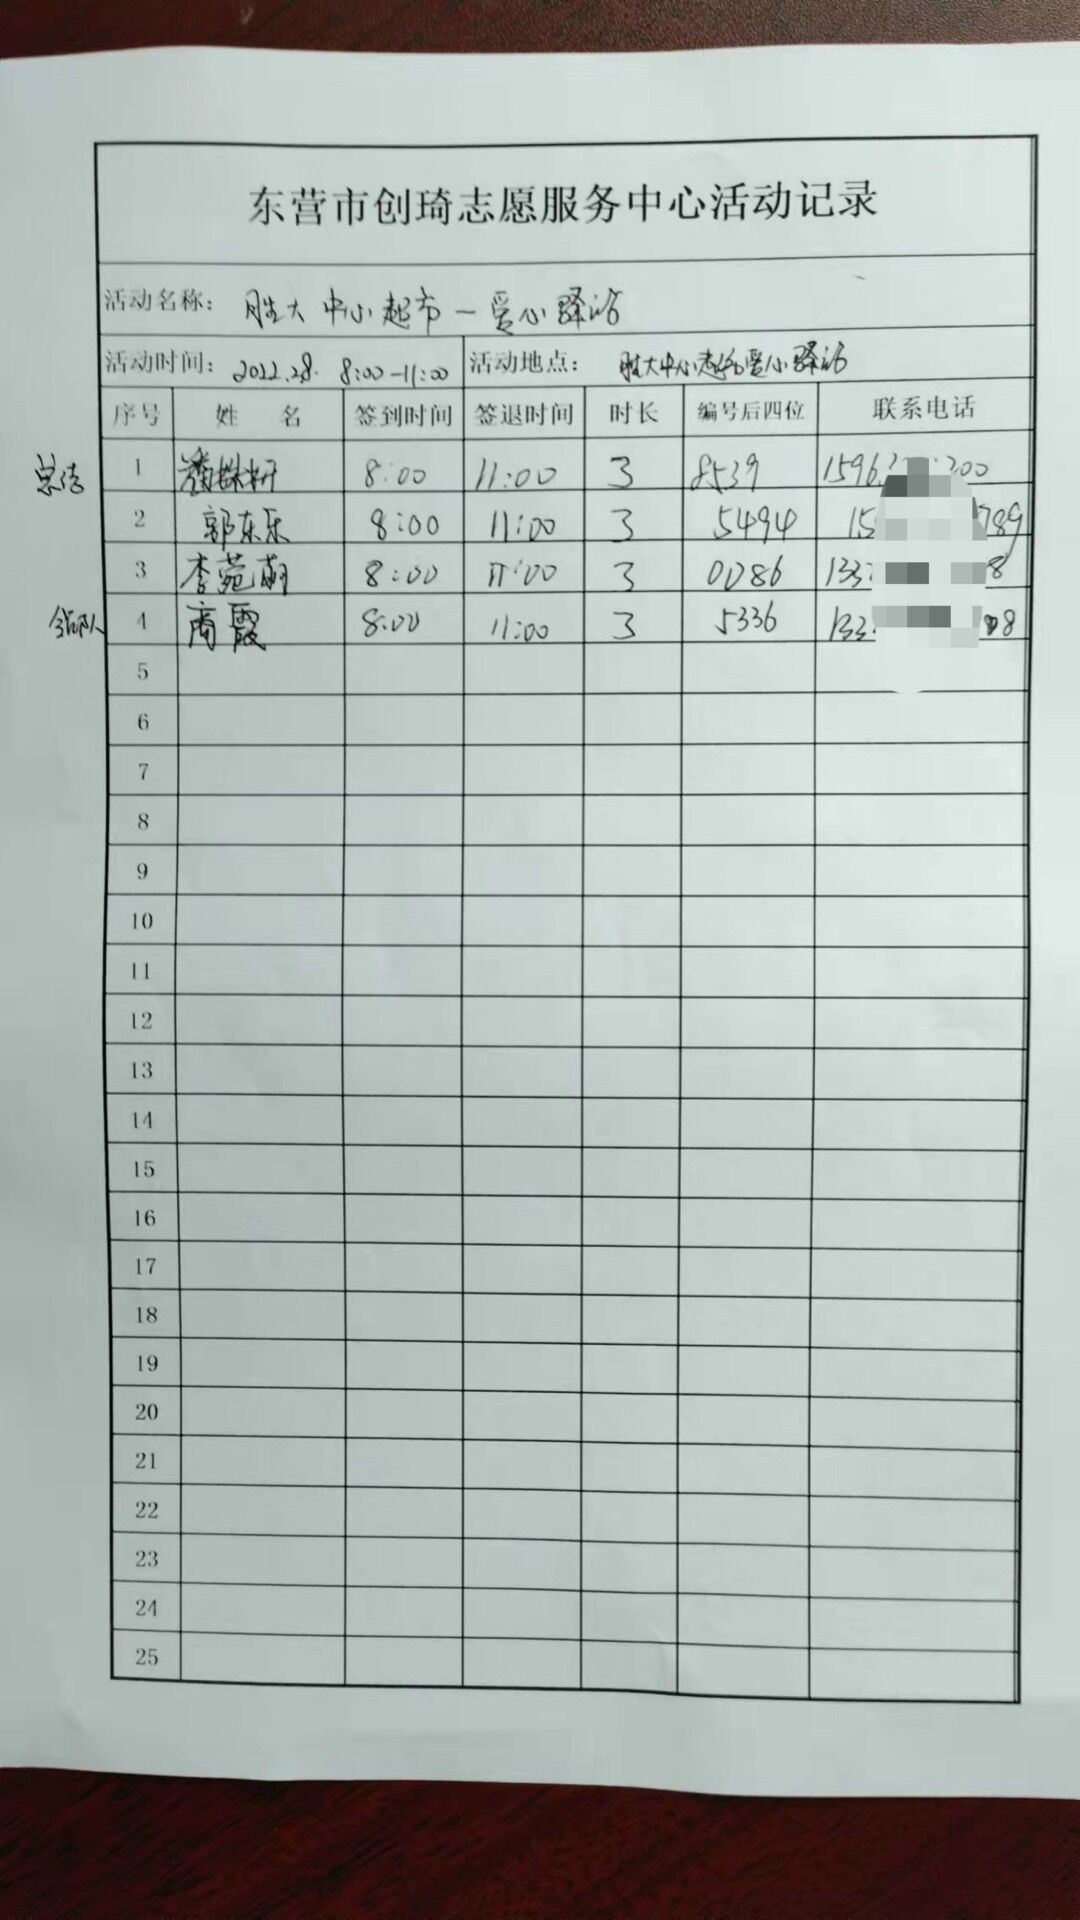 东营市创琦志愿服务中心活动记录
活动名称： 胜大中心超市一爱心驿站
活动时间： 2022.2.8. 8:00-11:00 活动地点： 胜大中心超市爱心驿站
序号 姓 名 签到时间 签退时间 时长 编号后四位 联系电话
总结 1 8:00 11:00 3 8539
2 郭东乐 8:00 11:00 3 5494
3 李苑萌 8:00 11:00 3 0086
领队 4 商霞 8:00 11:00 3 5336
5
6
7
8
9
10
11
12
13
14
15
16
17
18
19
20
21
22
23
24
25